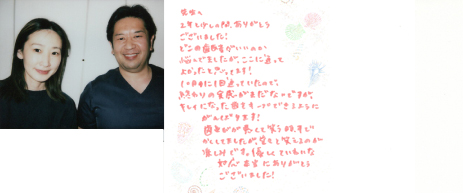 先生へ
2年と少しの間、ありがとう
ございました!
どこの歯医者がいいのか
悩んでましたが、ここに通って
よかったと思ってます!
1ヶ月に1回通っていたので、
終わりの実感がまだないですが、
キレイになった歯をキープできるように
がんばります!
歯並びが悪くて笑う時、手で
かくしてましたが、堂々と笑えるのが
楽しみです。優しくていねいな
対応本当にありがとう
ございました!